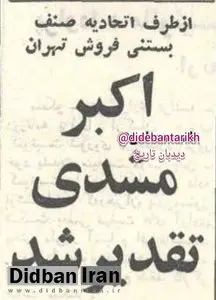 ازطرف اتحادیه صنف
بستنی فروش تهران
اکبر
@didebantarikh
دیدبان تاریخ
مشدی
تقدیر شد
Didban Iran
www.didbaniran.ir